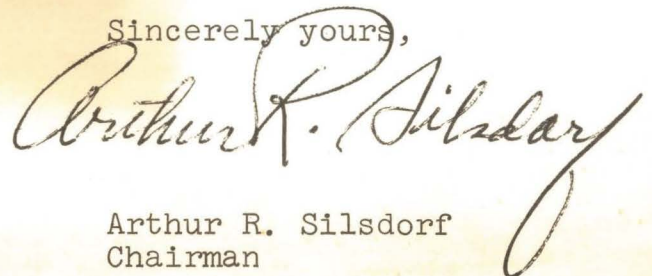 Sincerely yours,
Arthur R. Silsdorf
Arthur R. Silsdorf
Chairman